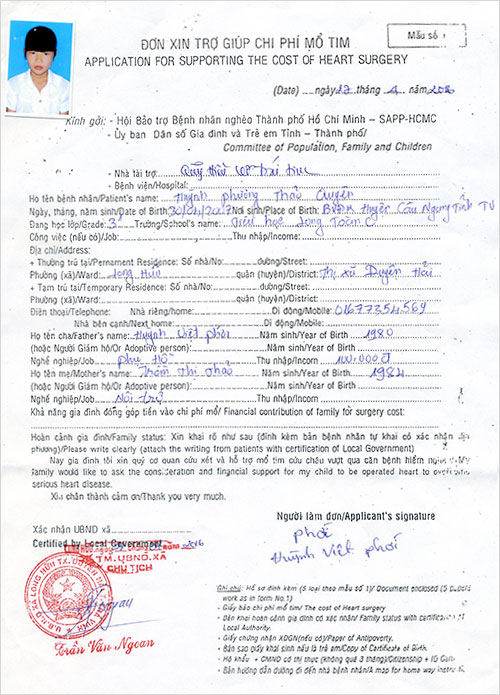 Mẫu số 1
ĐƠN XIN TRỢ GIÚP CHI PHÍ MỔ TIM
APPLICATION FOR SUPPORTING THE COST OF HEART SURGERY
(Date) ....ngày 27 tháng 4 năm 2016
Kính gởi: - Hội Bảo trợ Bệnh nhân nghèo Thành phố Hồ Chí Minh – SAPP-HCMC
- Ủy ban Dân số Gia đình và Trẻ em Tỉnh – Thành phố/
Committee of Population, Family and Children
- Nhà tài trợ:
- Bệnh viện/Hospital:
Họ tên bệnh nhân/Patient's name: Huỳnh phương Thảo Quyên
Ngày, tháng, năm sinh/Date of Birth: 30/04/2007 Nơi sinh/Place of Birth: BVĐK Huyện Cầu Ngang Tỉnh TV
Đang học lớp/Grade: 3 Trường/School's name: Tiểu học Long Toàn C
Công việc (nếu có)/Job: Thu nhập/Income:
Địa chỉ/Address:
+ Thường trú tại/Pernament Residence: Số nhà/No: đường/Street:
Phường (xã)/Ward: Long Hữu quận (huyện)/District: Thị xã Duyên Hải
+ Tạm trú tai/Temporary Residence: Số nhà/No: đường/Street:
Phường (xã)/Ward: quận (huyện)/District:
Điện thoại/Telephone: Nhà riêng/home: Di động/Mobile: 01677354569
Nhà bên cạnh/Next home: Di động/Mobile:
Họ tên cha/Father's name: Huỳnh Việt phới Năm sinh/Year of Birth 1980
(hoặc Người Giám hộ/Or Adoptive person): Năm sinh/Year of Birth
Nghề nghiệp/Job phụ Hồ Thu nhập/Incom 100.000đ
Họ tên mẹ/Mother's name: Phạm thị thảo Năm sinh/Year of Birth 1984
(hoặc Người Giám hộ/Or Adoptive person): Năm sinh/Year of Birth
Nghề nghiệp/Job Nội trợ Thu nhập/Incom
Khả năng gia đình đóng góp tiền vào chi phí mổ/ Financial contribution of family for surgery cost:
Hoàn cảnh gia đình/Family status: Xin khai rõ như sau (đính kèm bản bệnh nhân tự khai có xác nhận địa
phương)/Please write clearly (attach the writing from patients with certification of Local Government)
Nay gia đình tôi xin quý cơ quan cứu xét và hỗ trợ mổ tim cứu cháu vượt qua căn bệnh hiểm nghèo/My
family would like to ask the consideration and financial support for my child to be operated heart to overcome
serious heart disease.
Xin chân thành cảm ơn/Thank you very much.
Người làm đơn/Applicant's signature
phới
Huỳnh Việt phới
Xác nhận UBND xã
Certified by Local Government
TM.UBND.XÃ
CHỦ TỊCH
Trần Văn Ngoan
Ghi chú: Hồ sơ đính kèm (5 loại theo mẫu số 1)/ Document enclosed (5
work as in form No.1)
- Giấy báo chi phí mổ tim/ The cost of Heart surgery
- Đơn khai hoàn cảnh gia đình có xác nhận/ Family status with certification
Local Authority.
- Giấy chứng nhận XĐGN(nếu có)/Paper of Antipoverty.
- Bản sao giấy khai sinh nếu là trẻ em/Copy of Certificate of Birth.
- Hộ khẩu + CMND có thị thực (không quá 3 tháng)/Citizenship + ID
- Bản hướng dẫn đường đi đến nhà bệnh nhân/A map for home way